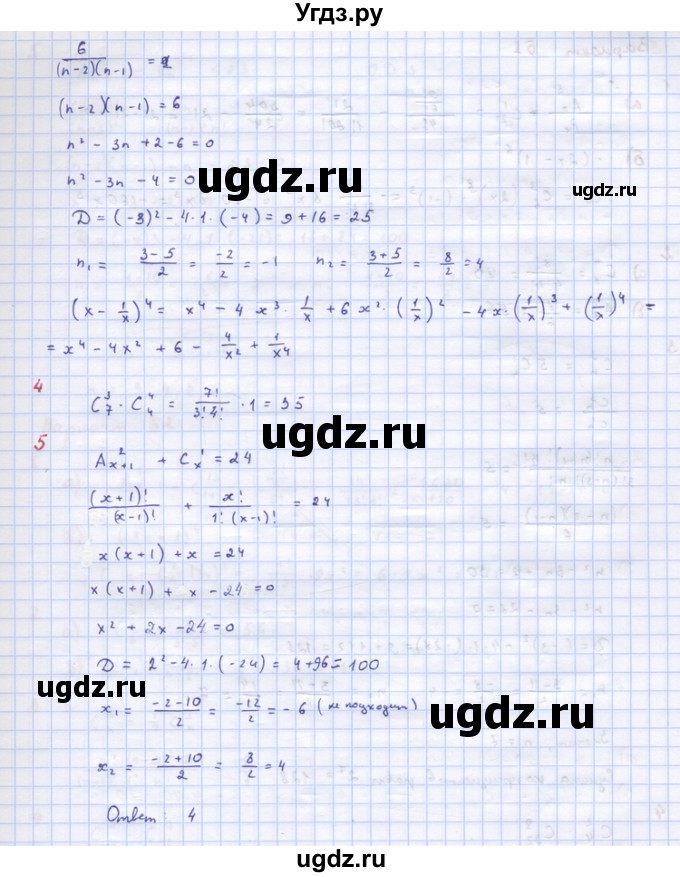 Угдз.ру
6/((n-2)(n-1)) = 1
(n-2)(n-1) = 6
n² - 3n + 2 - 6 = 0
n² - 3n - 4 = 0
ugdz.ru
D = (-3)² - 4·1·(-4) = 9 + 16 = 25
n₁ = (3-5)/2 = -2/2 = -1    n₂ = (3+5)/2 = 8/2 = 4
(x - 1/x)⁴ = x⁴ - 4x³·1/x + 6x²·(1/x)² - 4x·(1/x)³ + (1/x)⁴ =
= x⁴ - 4x² + 6 - 4/x² + 1/x⁴
ugdz.ru
4
C₇³ · C₄⁴ = 7!/(3!4!) · 1 = 35
ugdz.ru
5
A²ₓ₊₁ + C¹ₓ = 24
(x+1)!/(x-1)! + x!/(1!(x-1)!) = 24
x(x+1) + x = 24
x(x+1) + x - 24 = 0
x² + 2x - 24 = 0
D = 2² - 4·1·(-24) = 4 + 96 = 100
ugdz.ru
x₁ = (-2-10)/2 = -12/2 = -6 (не подходит)
ugdz.ru
x₂ = (-2+10)/2 = 8/2 = 4
Ответ: 4
ugdz.ru